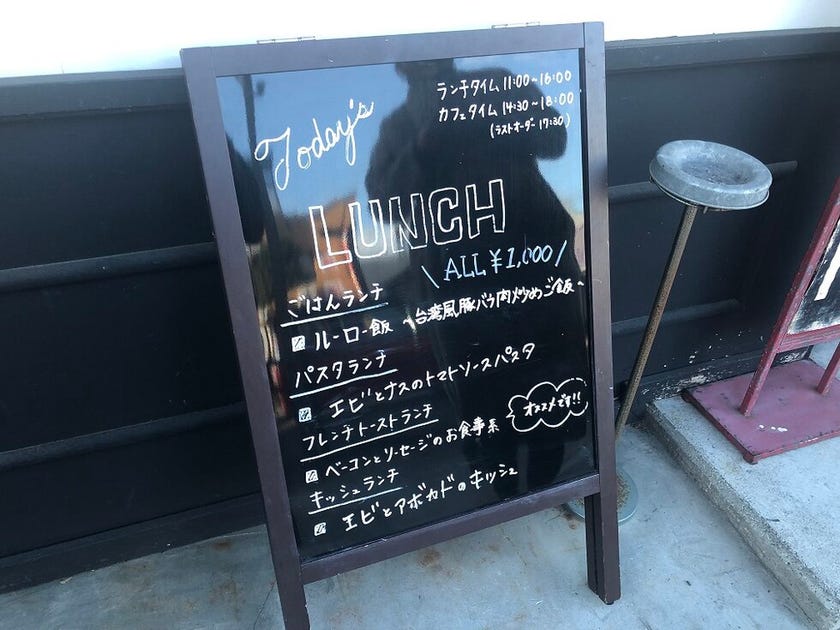 Today's
ランチタイム 11:00~16:00
カフェタイム 14:30~18:00
(ラストオーダー 17:30)
LUNCH
\ ALL ¥1,000 /
ごはんランチ
ルーロー飯 ~台湾風豚バラ肉炒めご飯~
パスタランチ
エビとナスのトマトソースパスタ
フレンチトーストランチ
オススメです!!
ベーコンとソーセージのお食事系
キッシュランチ
エビとアボカドのキッシュ